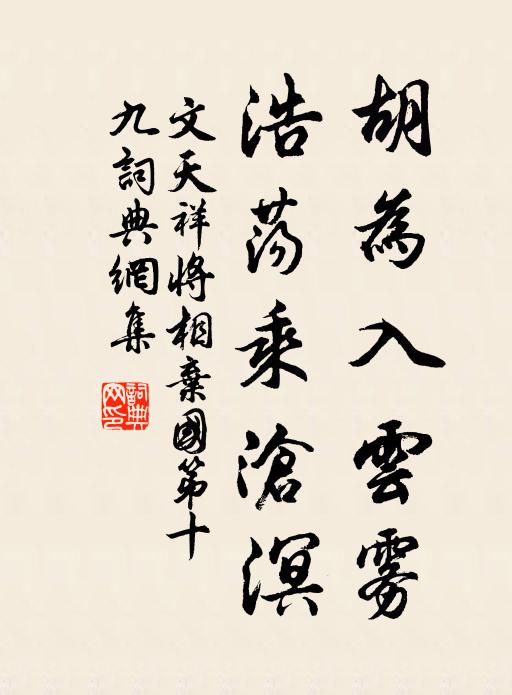 胡為入雲霧
浩蕩乘滄溟
文天祥將相棄國第十
九詞典網集
詞典
網印